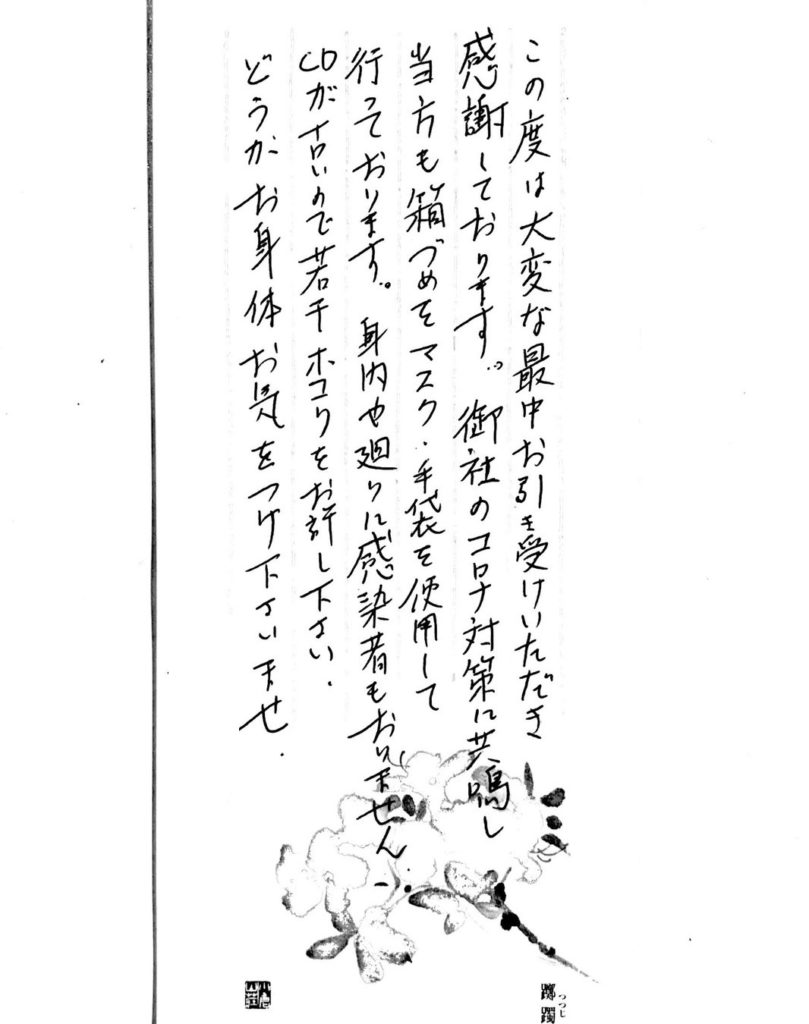 この度は大変な最中お引き受けいただき
感謝しております。御社のコロナ対策に共鳴し
当方も箱づめをマスク・手袋を使用して
行っております。身内や廻りに感染者もおりません.
CDが古いので若干ホコリをお許し下さい.
どうかお身体お気をつけ下さいませ.
躑躅
つつじ